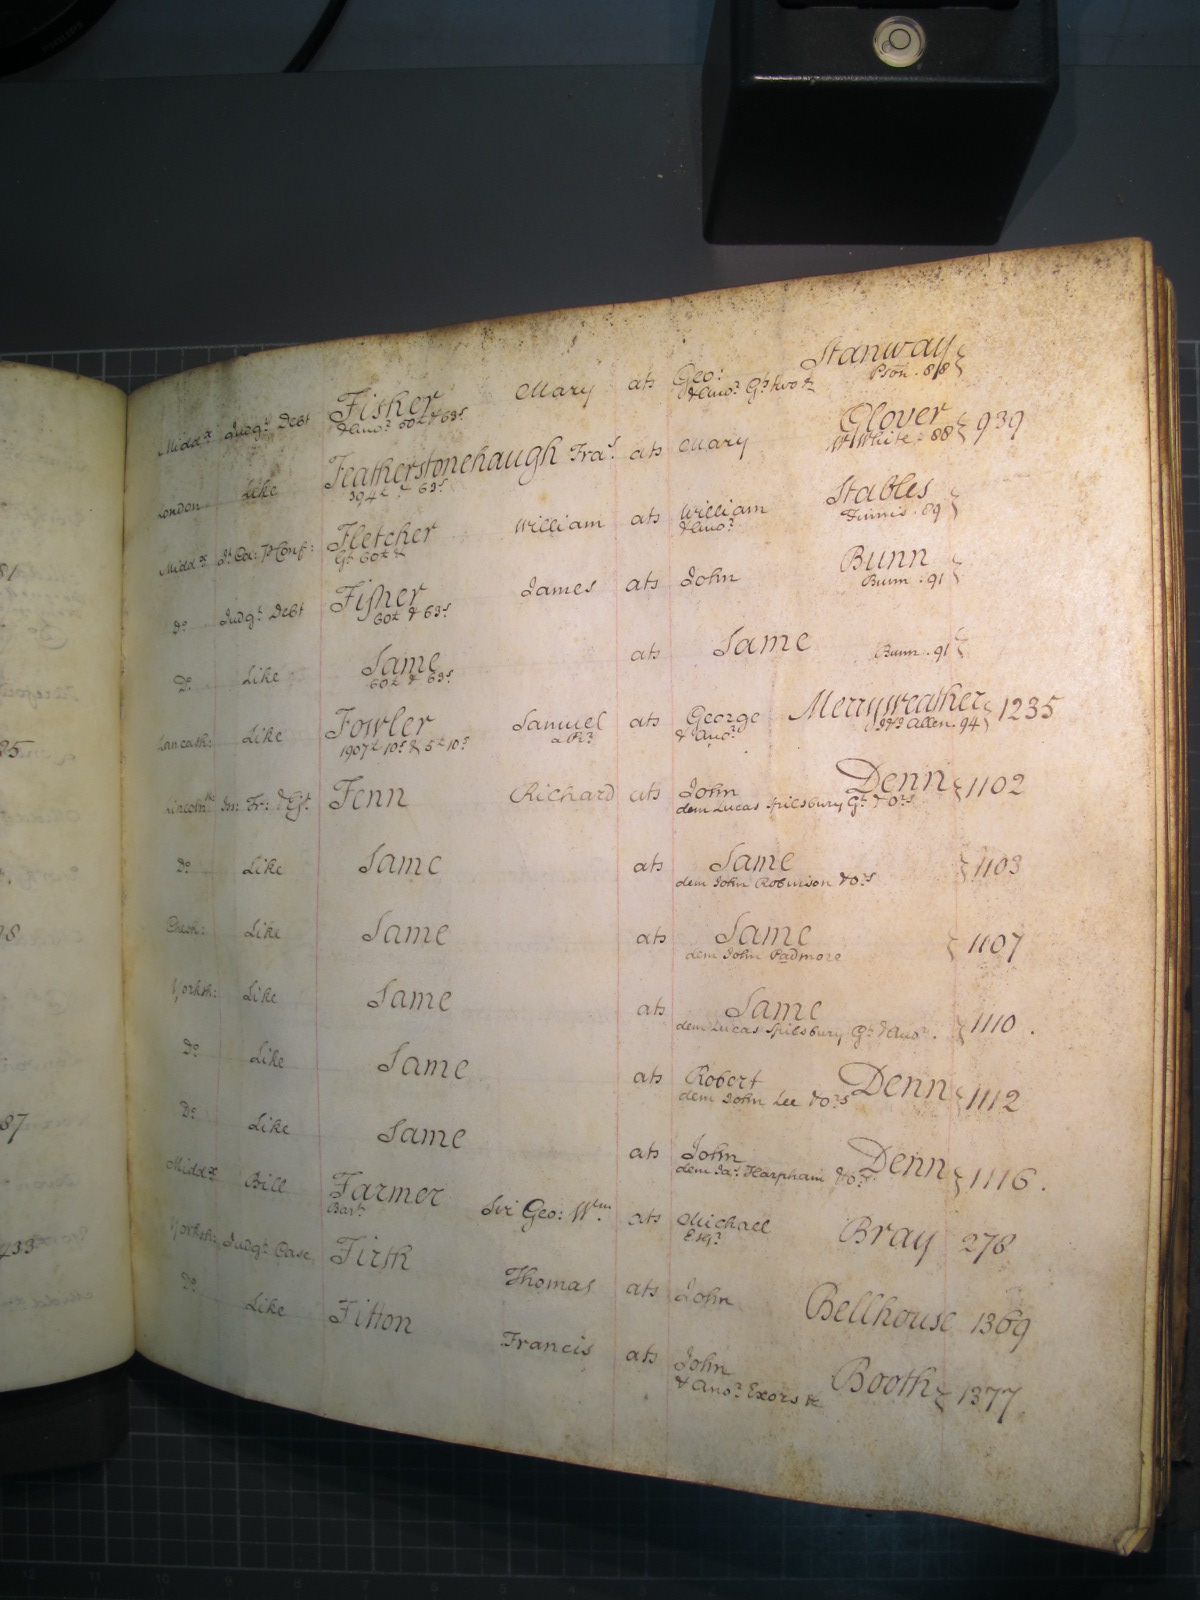 Midd.x Judg.t Debt Fisher Mary ats Geo: Stanway
& ano.r 60£ & 63.s & ano.r Pson . 88
London Like Featherstonehaugh Fra.s ats Mary Glover 939
394£ & 63.s W White . 88
Midd.x Fletcher William ats William Stables
G.t 60£ & & ano.r Finnis . 89
D.o Judg.t Debt Fisher James ats John Bunn
60£ & 63.s Bunn . 91
D.o Like Same ats Same Bunn . 91
60£ & 63.s
Lancash: Like Fowler Samuel ats George Merryweather 1235
1907£ 10.s & 5£ 10.s & ano.r Allen . 94
Lincoln In: Tr: & Ej.t Fenn Richard ats John Denn 1102
dem Lucas Spilsbury G.t & o.rs
D.o Like Same ats Same 1103
dem John Robinson & o.rs
Chesh: Like Same ats Same 1107
dem John Padmore
Yorksh: Like Same ats Same 1110 .
dem Lucas Spilsbury G.t & ano.r .
D.o Like Same ats Robert Denn 1112
dem John Lee & o.rs
D.o Like Same ats John Denn 1116 .
dem Ja.s Harpham & o.rs
Midd.x Bill Farmer Sir Geo: W.m ats Michael Bray 278
Bar.t Esq.r
Yorksh: Judg.t Case Firth Thomas ats John Bellhouse 1369
D.o Like Fitton Francis ats John Booth 1377
& ano.r Exors &c